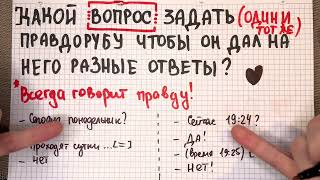 КАКОЙ ВОПРОС ЗАДАТЬ (ОДИН И ТОТ ЖЕ)
ПРАВДОРУБУ ЧТОБЫ ОН ДАЛ НА
НЕГО РАЗНЫЕ ОТВЕТЫ?
*Всегда говорит правду!
- Сегодня понедельник?
проходят сутки ...
- НЕТ
- Сейчас 19:24?
- ДА!
- (Время 19:25)
- НЕТ!